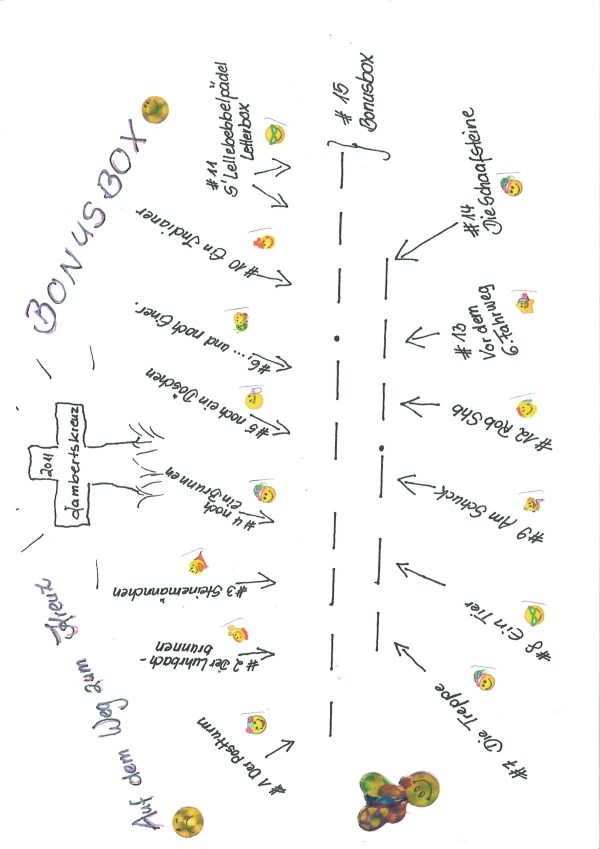 Auf dem Weg zum Kreuz
BONUSBOX
2011
Lambertskreuz
#1 Der Postturm
#2 Der Luhrbach-
brunnen
#3 Steinemännchen
#4 noch
ein Brunnen
#5 noch ein Döschen
#6, .... und noch Einer.
#10 Ein Indianer
#11
S'Lellebebbelpädel
Letterbox
#15
Bonusbox
#7 Die Treppe
#8 Ein Tier
#9 Am Schuck
#12 Rob Shb
#13
Vor dem
6. Fahrweg
#14
Die Schaafsteine